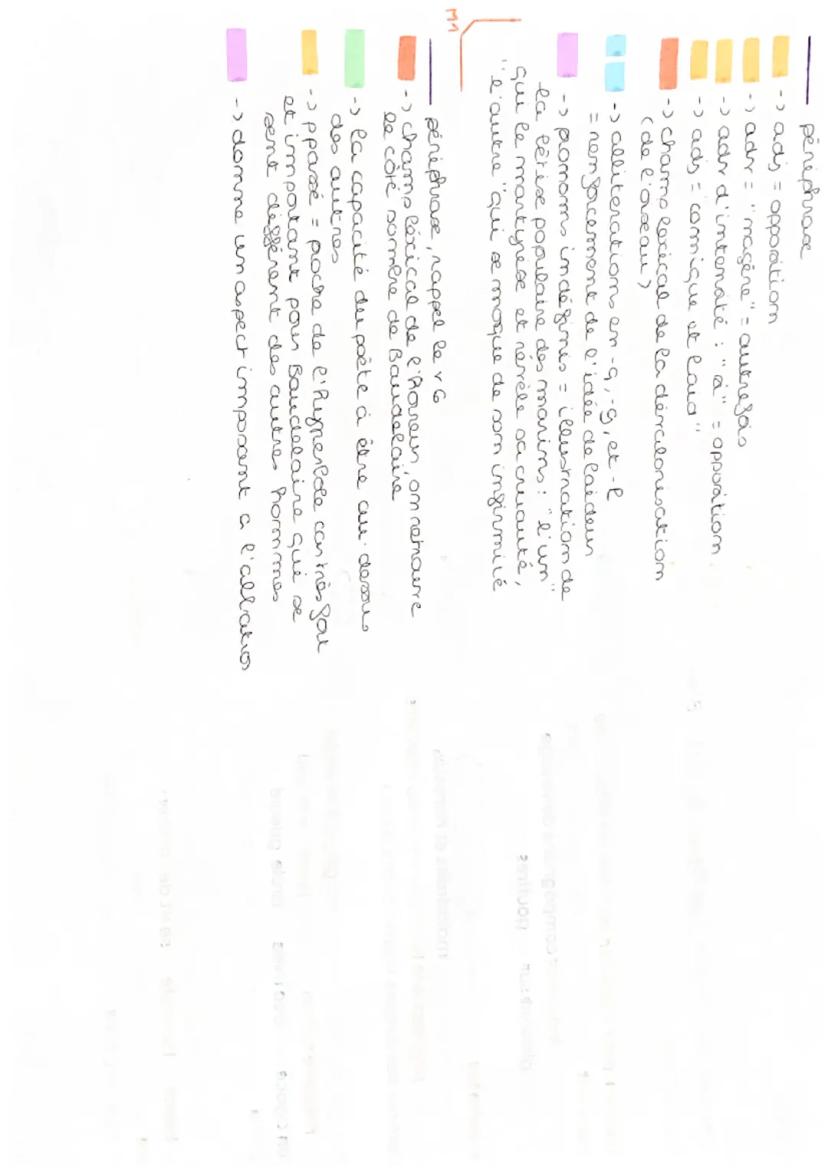 périphrase
-> adj = opposition
-> adv = "nagère" = autrefois
-> adv d'intensité : "si" = opposition
-> adj = comique et laid"
-> champ lexical de la dévalorisation
(de l'oiseau)
-> allitérations en -q, -g, et -l
= renforcement de l'idée de laideur
-> pronoms indéfinis = illustration de
la bêtise populaire des marins : "l'un"
qui le martyrise et révèle sa cruauté,
"l'autre" qui se moque de son infirmité
M4
périphrase, rappel le v6
-> champ lexical de l'horreur, on retrouve
le côté sombre de Baudelaire
-> la capacité du poète à être au-dessus
des autres
-> ppassé = proche de l'hyperbole car très fort
et important pour Baudelaire qui se
sent différent des autres hommes
-> donne un aspect imposant a l'albatros